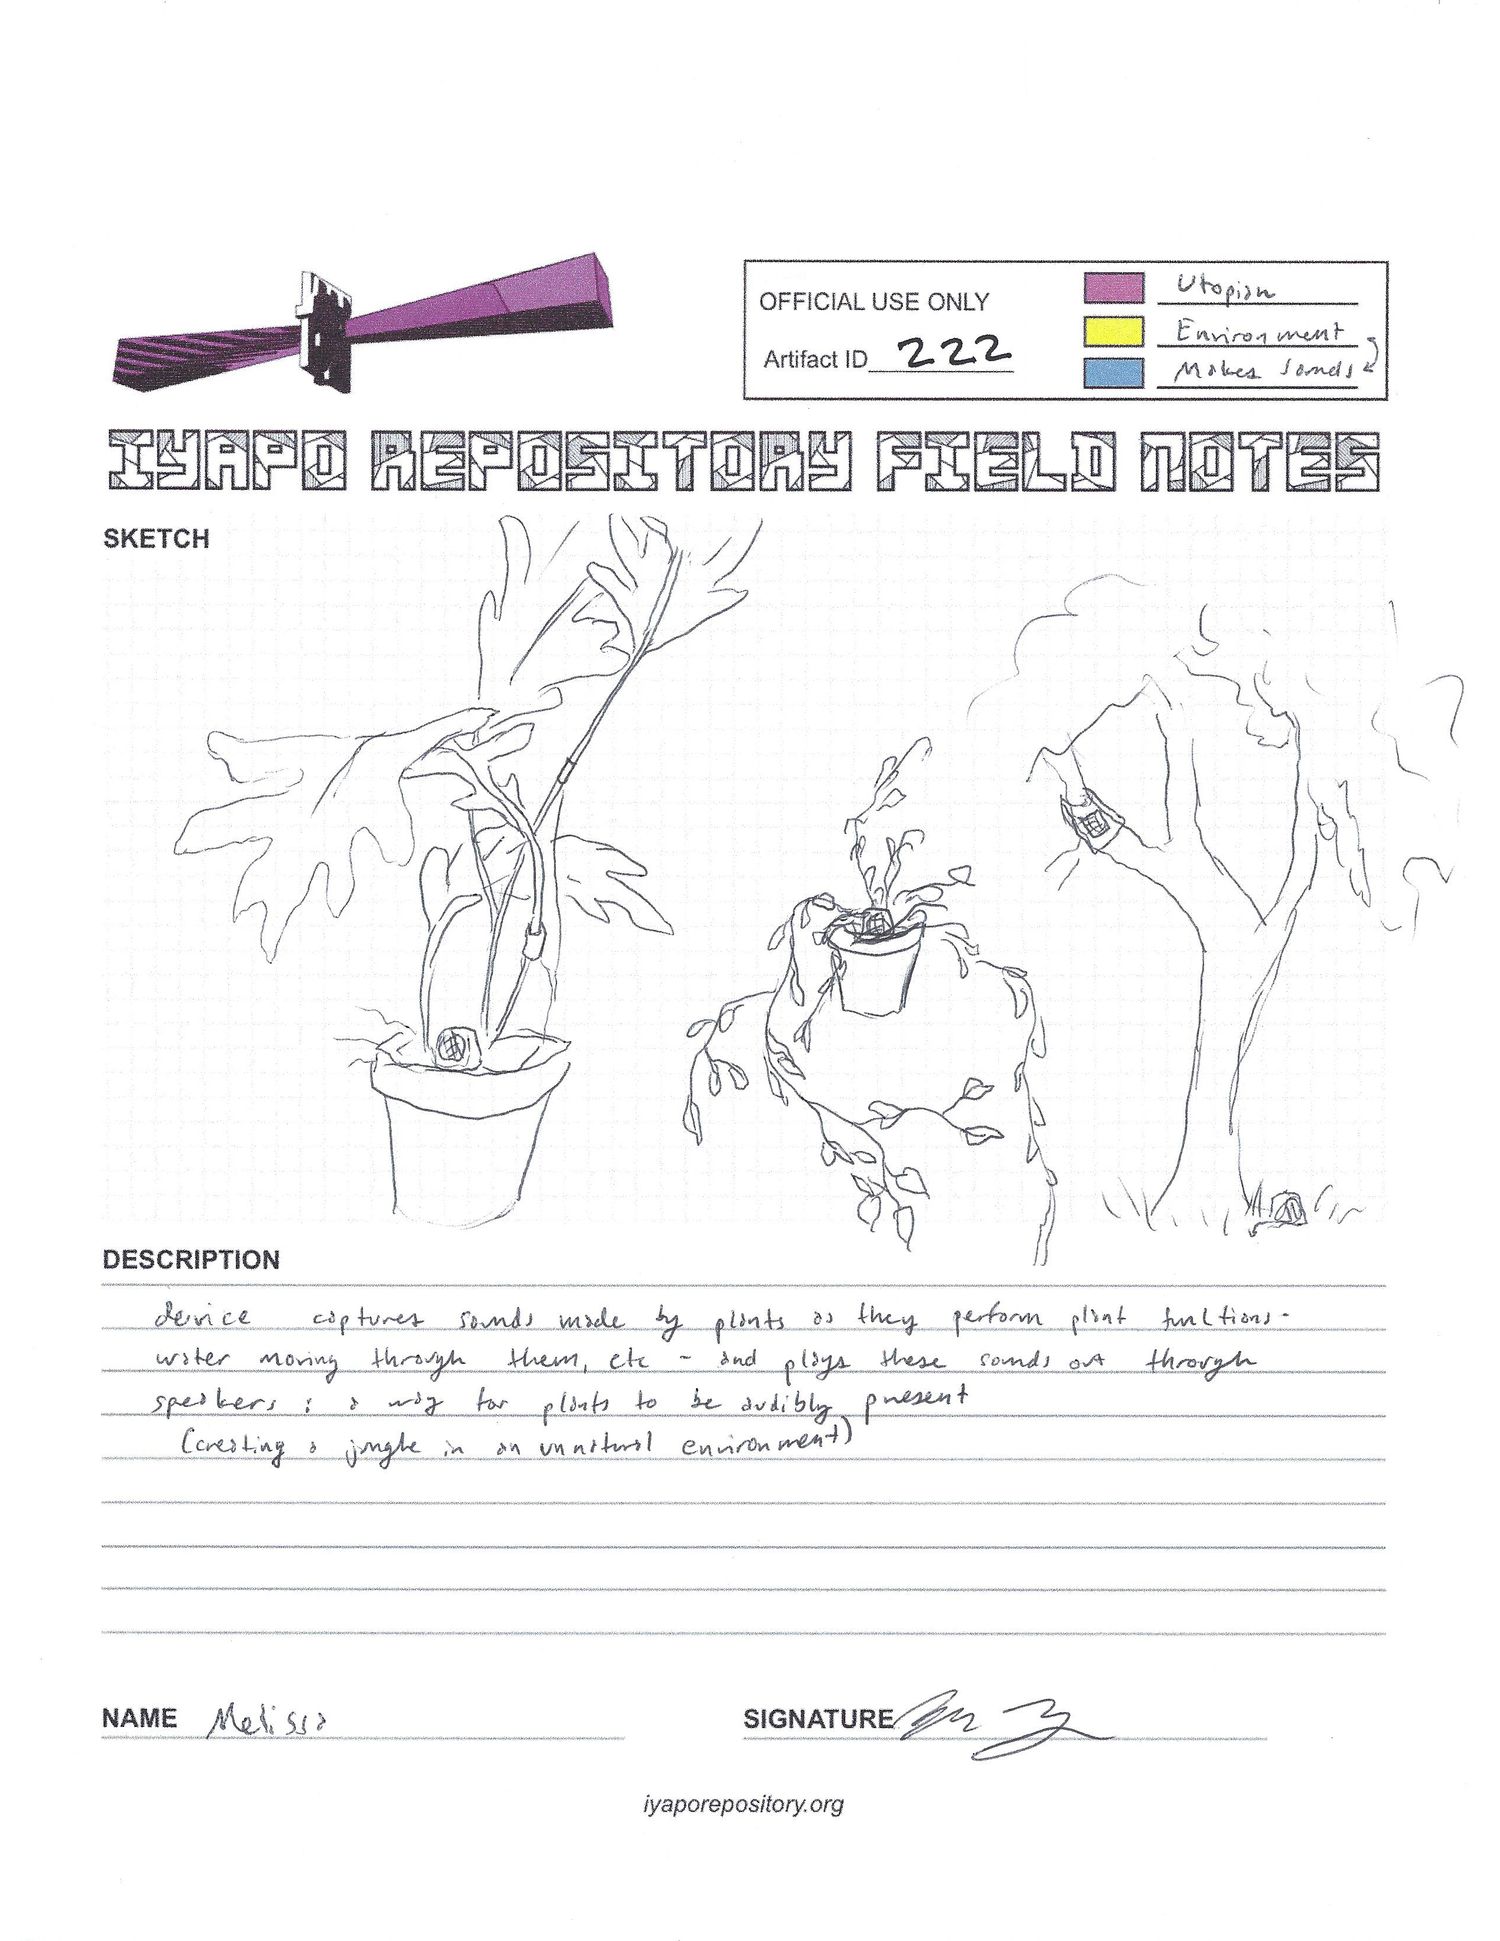 OFFICIAL USE ONLY
Artifact ID 222
Utopian
Environment
Makes sounds
IYAPO REPOSITORY FIELD NOTES
SKETCH
DESCRIPTION
device captures sounds made by plants as they perform plant functions -
water moving through them, etc - and plays these sounds out through
speakers; a way for plants to be audibly present
(creating a jungle in an unnatural environment)
NAME Melissa
SIGNATURE
iyaporepository.org